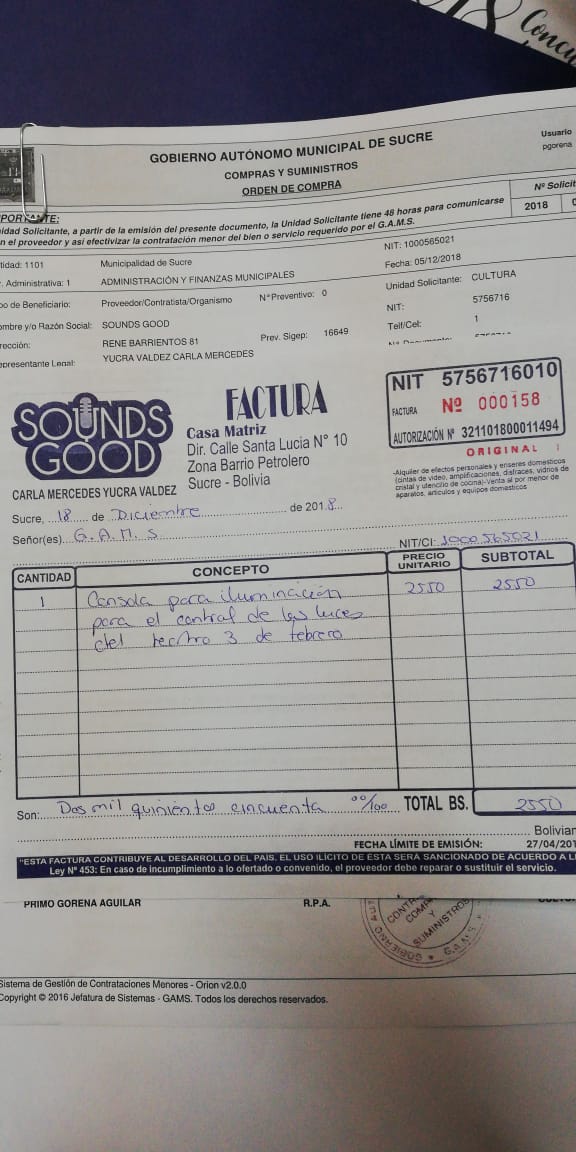 Concu
GOBIERNO AUTÓNOMO MUNICIPAL DE SUCRE
COMPRAS Y SUMINISTROS
ORDEN DE COMPRA
Usuario
pgorena
PORTANTE:
idad Solicitante, a partir de la emisión del presente documento, la Unidad Solicitante tiene 48 horas para comunicarse
n el proveedor y así efectivizar la contratación menor del bien o servicio requerido por el G.A.M.S.
Nº Solicit
2018
tidad: 1101 Municipalidad de Sucre NIT: 1000565021
. Administrativa: 1 ADMINISTRACIÓN Y FINANZAS MUNICIPALES Fecha: 05/12/2018
po de Beneficiario: Proveedor/Contratista/Organismo NºPreventivo: 0 Unidad Solicitante: CULTURA
ombre y/o Razón Social: SOUNDS GOOD NIT: 5756716
rección: RENE BARRIENTOS 81 Prev. Sigep: 16649 Telf/Cel: 1
epresentante Legal: YUCRA VALDEZ CARLA MERCEDES
SOUNDS GOOD
CARLA MERCEDES YUCRA VALDEZ
FACTURA
Casa Matriz
Dir. Calle Santa Lucia N° 10
Zona Barrio Petrolero
Sucre - Bolivia
NIT 5756716010
FACTURA Nº 000158
AUTORIZACIÓN Nº 321101800011494
ORIGINAL
-Alquiler de efectos personales y enseres domesticos
(cintas de video, amplificaciones, disfraces, vidrios de
cristal y utencilio de cocina)-Venta al por menor de
aparatos, articulos y equipos domesticos
Sucre, 18 de Diciembre de 2018
Señor(es) G.A.M.S
NIT/CI: 1000565021
CANTIDAD CONCEPTO PRECIO UNITARIO SUBTOTAL
1 Consola para iluminación 2550 2550
para el control de las luces
del teatro 3 de febrero
Son: Dos mil quinientos cincuenta 00/100 TOTAL BS. 2550
Bolivian
FECHA LÍMITE DE EMISIÓN: 27/04/201
"ESTA FACTURA CONTRIBUYE AL DESARROLLO DEL PAIS. EL USO ILÍCITO DE ÉSTA SERÁ SANCIONADO DE ACUERDO A L
Ley Nº 453: En caso de incumplimiento a lo ofertado o convenido, el proveedor debe reparar o sustituir el servicio.
PRIMO GORENA AGUILAR R.P.A.
SUMINISTROS
G.A.M.S.
Sistema de Gestión de Contrataciones Menores - Orion v2.0.0
Copyright © 2016 Jefatura de Sistemas - GAMS. Todos los derechos reservados.